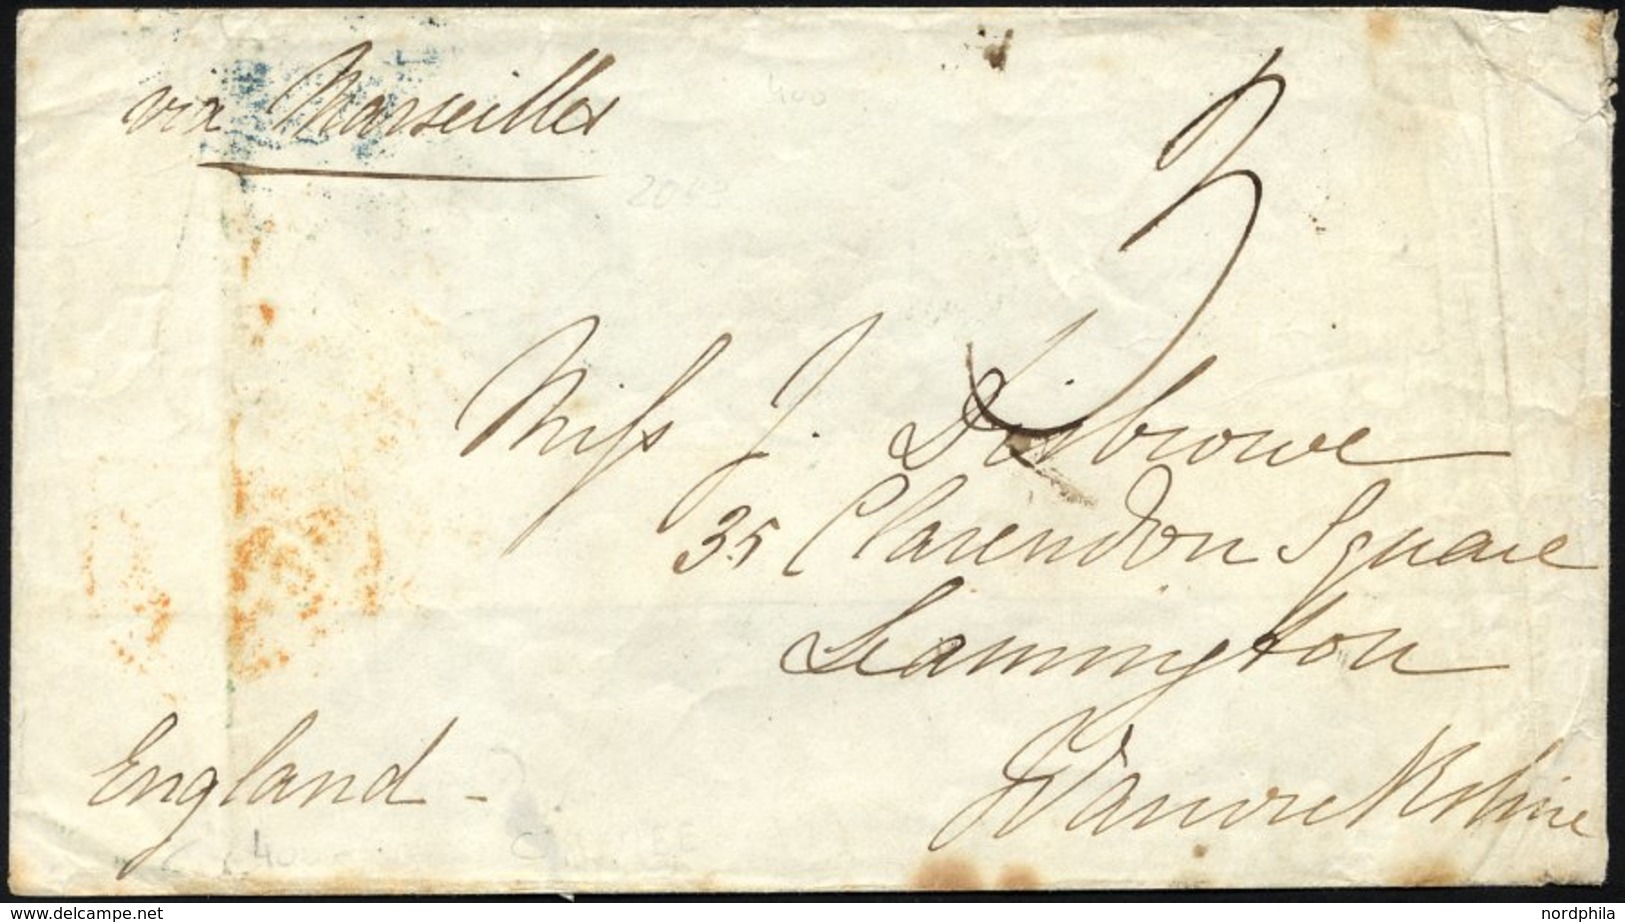 via Marseilles
400
3
Miss J. Disbrowe
35 Clarendon Square
Leamington
Warwickshire
England -
400
www.delcampe.net
nordphila